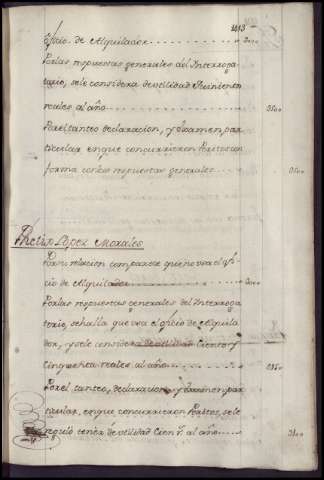 1113
oficio de Alquilador
Por las respuestas generales del Interroga
torio, se le considera de utilidad Quinientos
reales al año
Por el tanteo declaracion, y examen par
ticular en que concurrieron Peritos con
forma con las respuestas generales
Phelix Lopez Morales
Por su relacion comparece que no usa el ofi
cio de Alquilador
Por las respuestas generales del Interroga
torio, se halla que usa el oficio de Alquila
dor, y se le considera de utilidad Ciento y
Cinquenta reales al año
Por el tanteo, declaracion y examen par
ticular, en que concurrieron Peritos, se le
reguló tener de utilidad Cien rs. al año